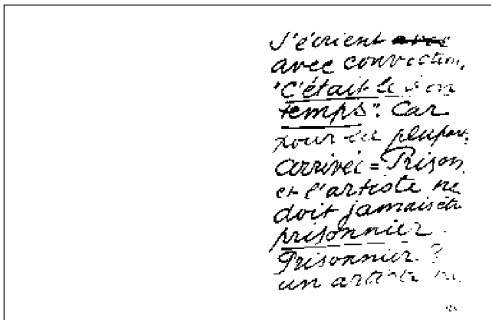 s'écrient
avec conviction,
"C'était le bon
temps". Car
pour la plupart
arrivée = Prison
et l'artiste ne
doit jamais être
prisonnier.
Prisonnier ?
un artiste ne